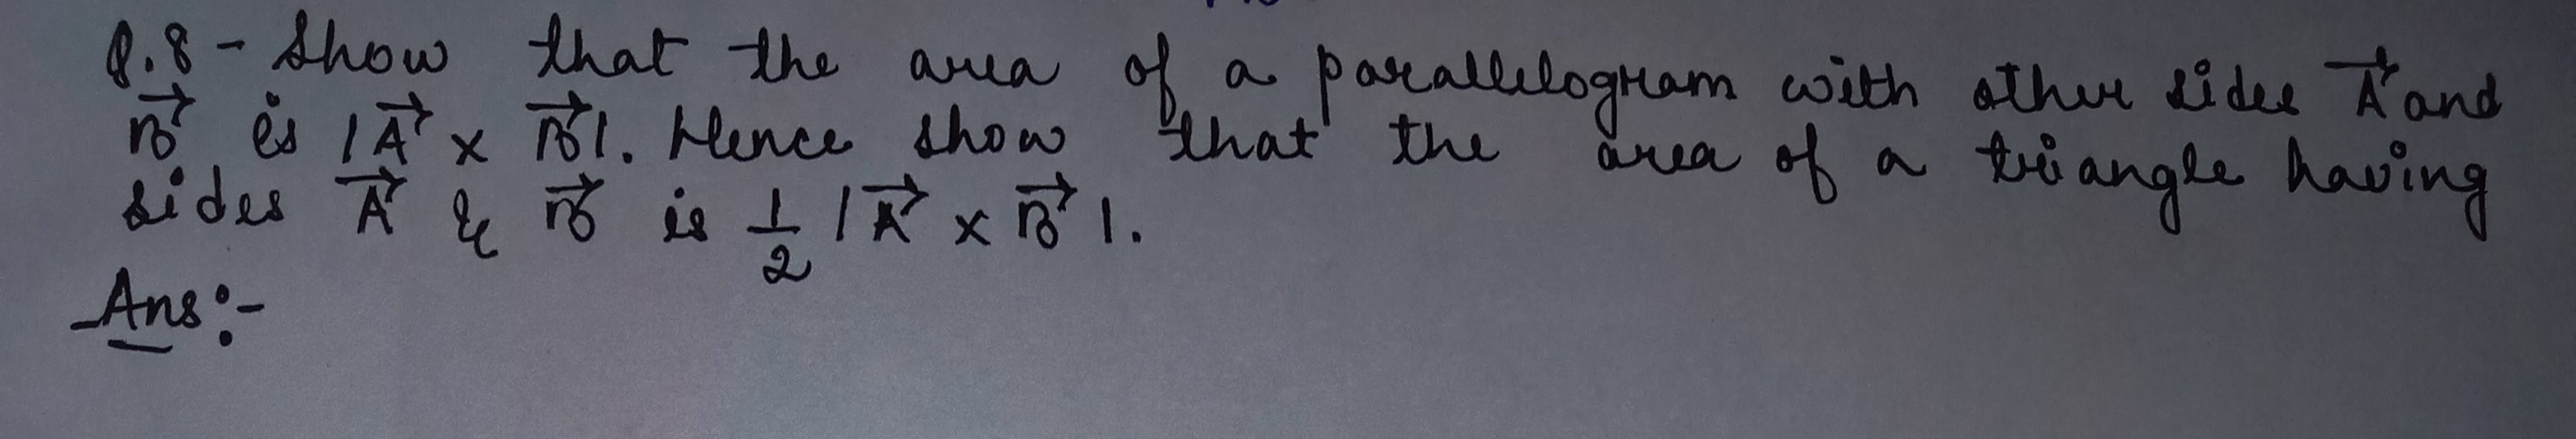 Q.8 - Show that the area of a parallelogram with other sides A⃗ and
B⃗ is |A⃗ × B⃗|. Hence show that the area of a triangle having
sides A⃗ & B⃗ is 1/2 |A⃗ × B⃗|.
Ans:-